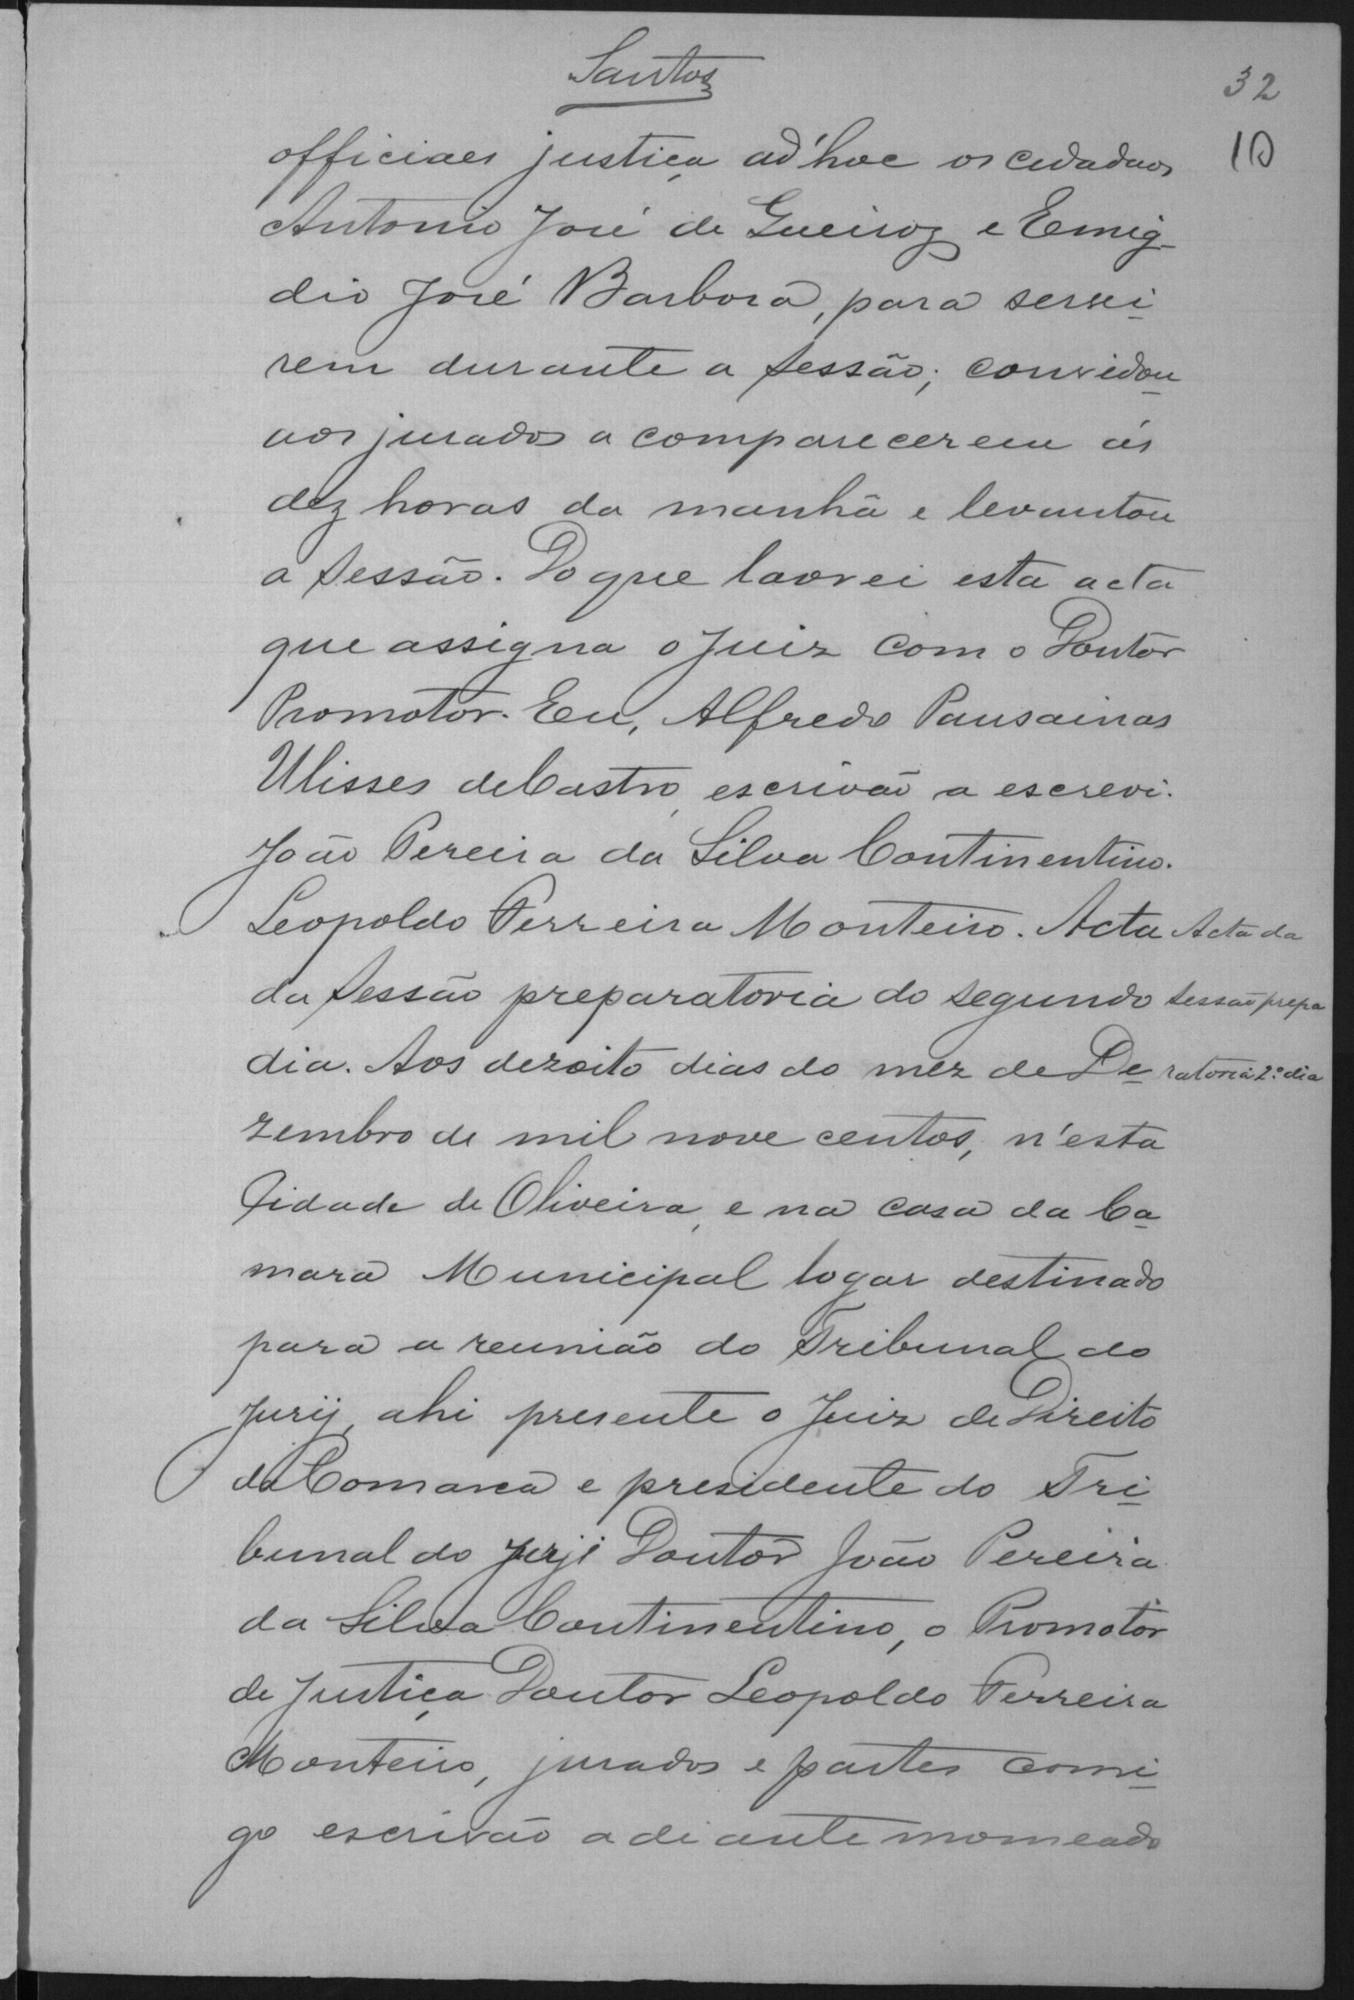 Santos
32
10
officiaes justiça ad'hoc os cidadaos
Antonio José de Queiroz e Emig-
dio José Barbosa, para servi-
rem durante a sessão; convidou
aos jurados a comparecerem ás
dez horas da manhã e levantou
a sessão. Do que lavrei esta acta
que assigna o Juiz com o Doutor
Promotor. Eu, Alfredo Pausainas
Ulisses de Castro, escrivão a escrevi.
João Pereira da Silva Continentino.
Leopoldo Ferreira Monteiro. Acta
da sessão preparatoria do segundo
dia. Aos dezoito dias do mez de De-
zembro de mil nove centos, n'esta
Cidade de Oliveira, e na casa da Ca-
mara Municipal logar destinado
para a reunião do Tribunal do
Jury, ahi presente o Juiz de Direito
da Comarca e presidente do Tri-
bunal do Jury Doutor João Pereira
da Silva Continentino, o Promotor
de Justiça Doutor Leopoldo Ferreira
Monteiro, jurados e partes comi-
go escrivão adiante nomeado
Acta da
sessão prepa
ratoria 2º dia